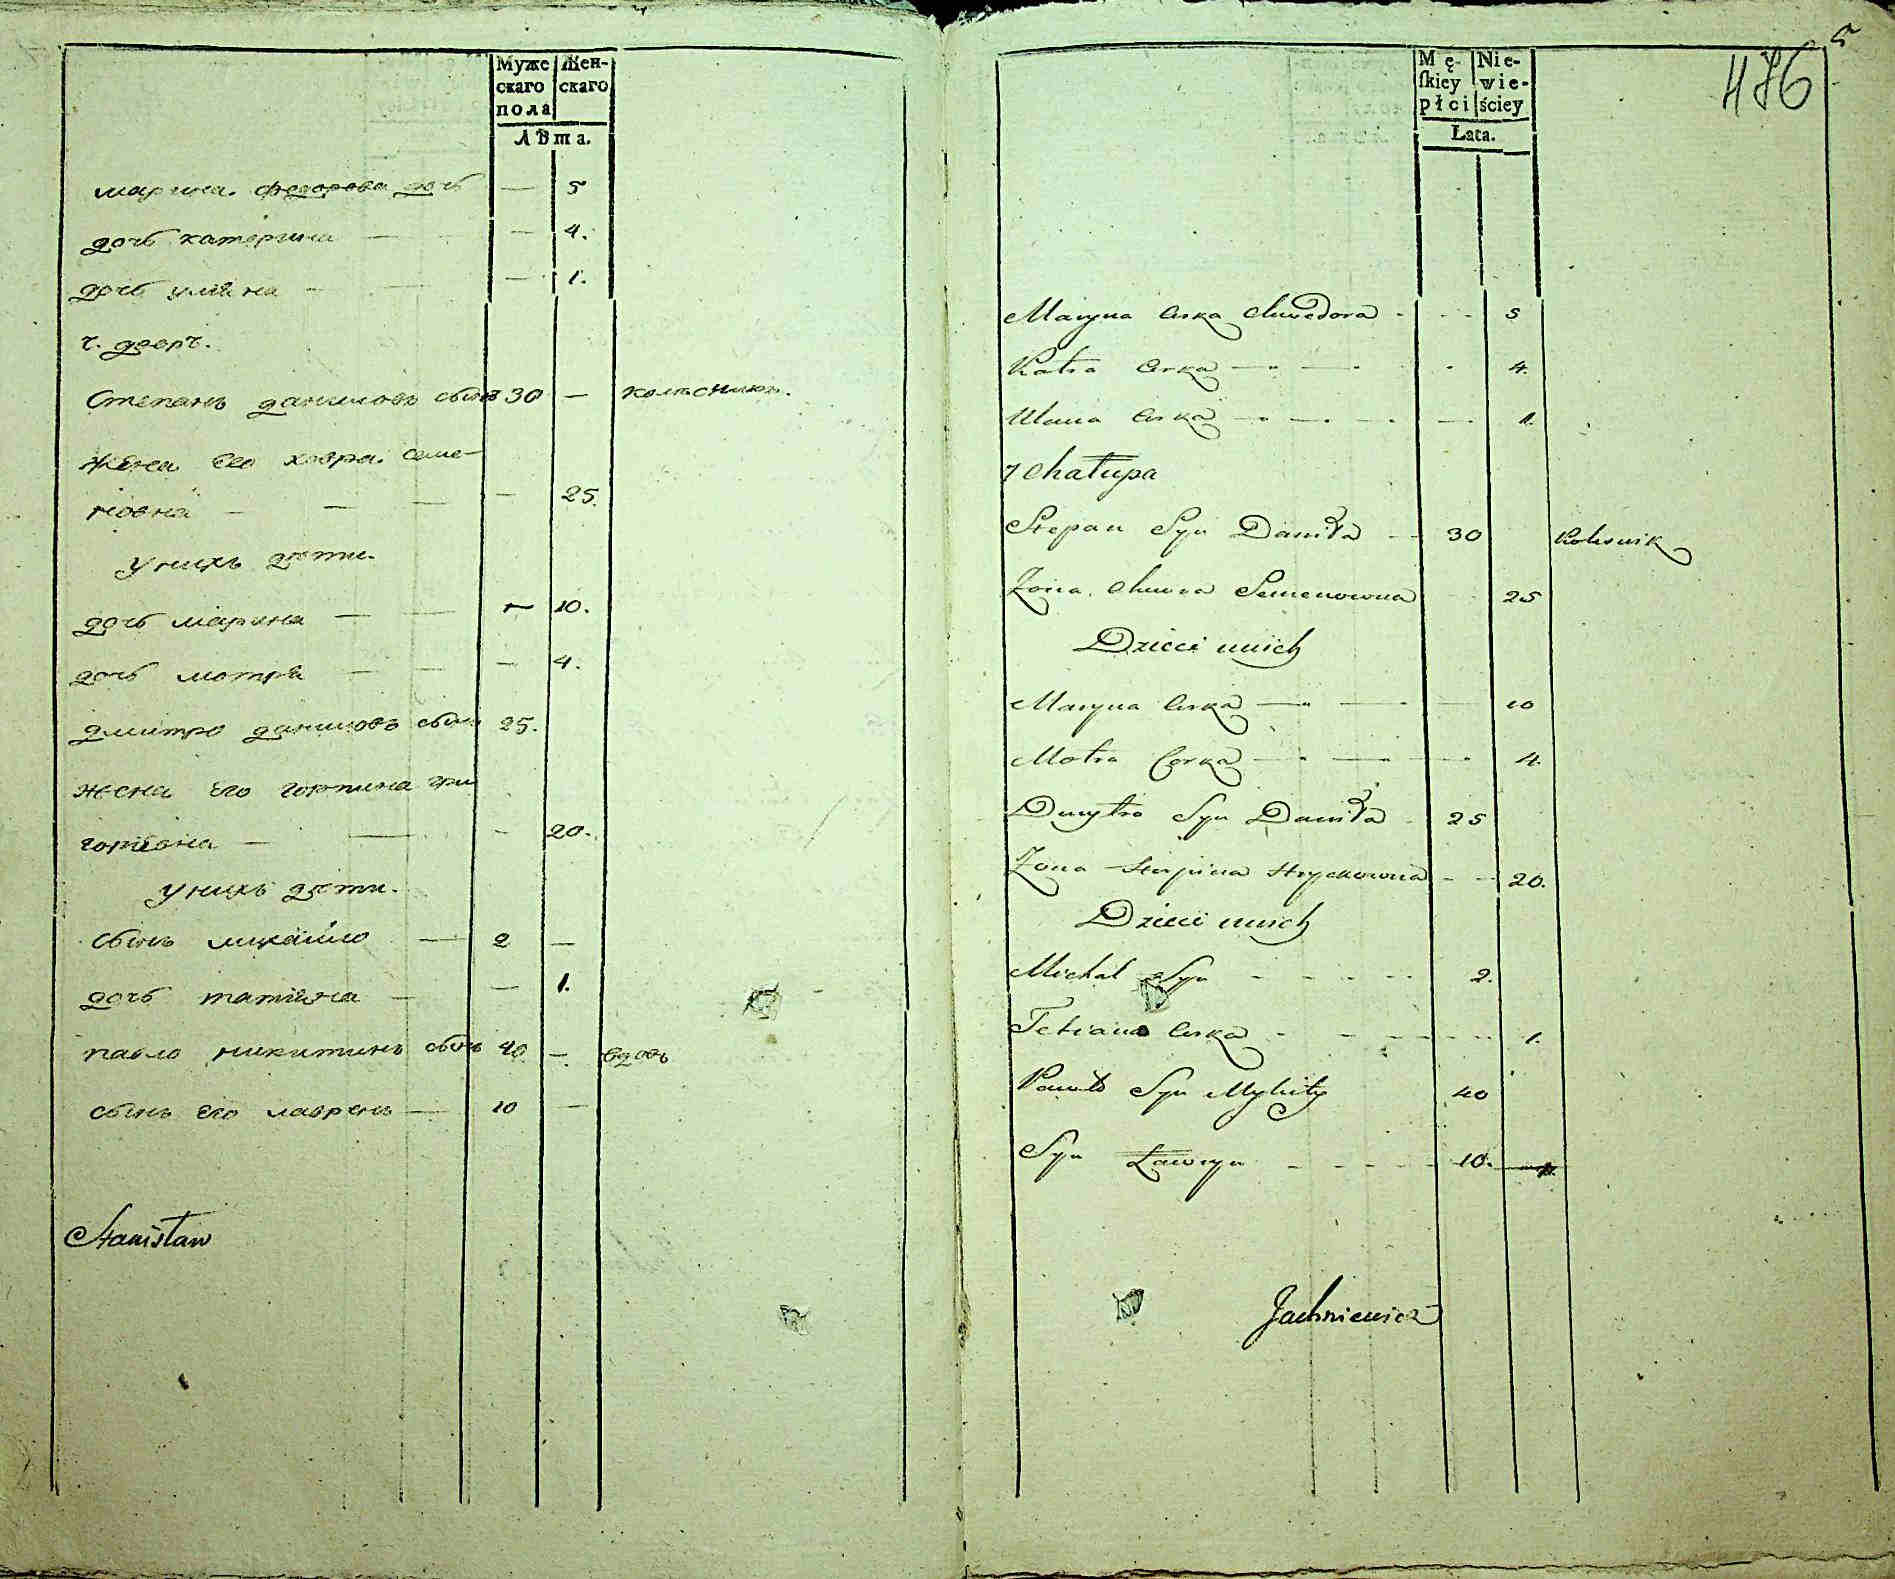 Муже
скаго
пола
Жен-
скаго
Лѣта.
марина федорова дочь — 5
дочь катерина — — 4.
дочь уляна — — — 1.
7. дворъ.
Степанъ даниловъ сынъ 30 — колѣсникъ.
жена его ховра семе-
новна — — — — 25.
у нихъ дѣти.
дочь марина — — 10.
дочь мотря — — — 4.
дмитро даниловъ сынъ 25.
жена его горпина гри
горіевна — — — 20.
у нихъ дѣти.
сынъ михайло — 2 —
дочь татіяна — — 1.
павло никитинъ сынъ 40 — вдовъ
сынъ его лаврѣнъ — 10 —
Stanisław
5
476
Mę-
ſkiey
płci
Nie-
wie-
ściey
Lata.
Maryna Curka Chwedora - - - 5
Katra Curka — - — - - 4.
Ulana Curka — - — - - — 1.
7 Chałupa
Stepan Syn Daniła - - 30 Kolesnik
Zona Chwera Semenowna - - 25
Dzieci u nich
Maryna Curka — - — - — 10
Motra Corka — - — - — - 4.
Dmytro Syn Daniła - 25
Zona Horpina Hryckowna - - 20.
Dzieci u nich
Michał Syn - - - - - 2.
Tetiana Curka - - - - - - 1.
Pawło Syn Mykity 40
Syn Ławryn - - - - 10. —
Jachniewicz